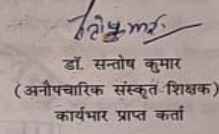 डॉ. सन्तोष कुमार
(अनौपचारिक संस्कृत शिक्षक)
कार्यभार प्राप्त कर्ता